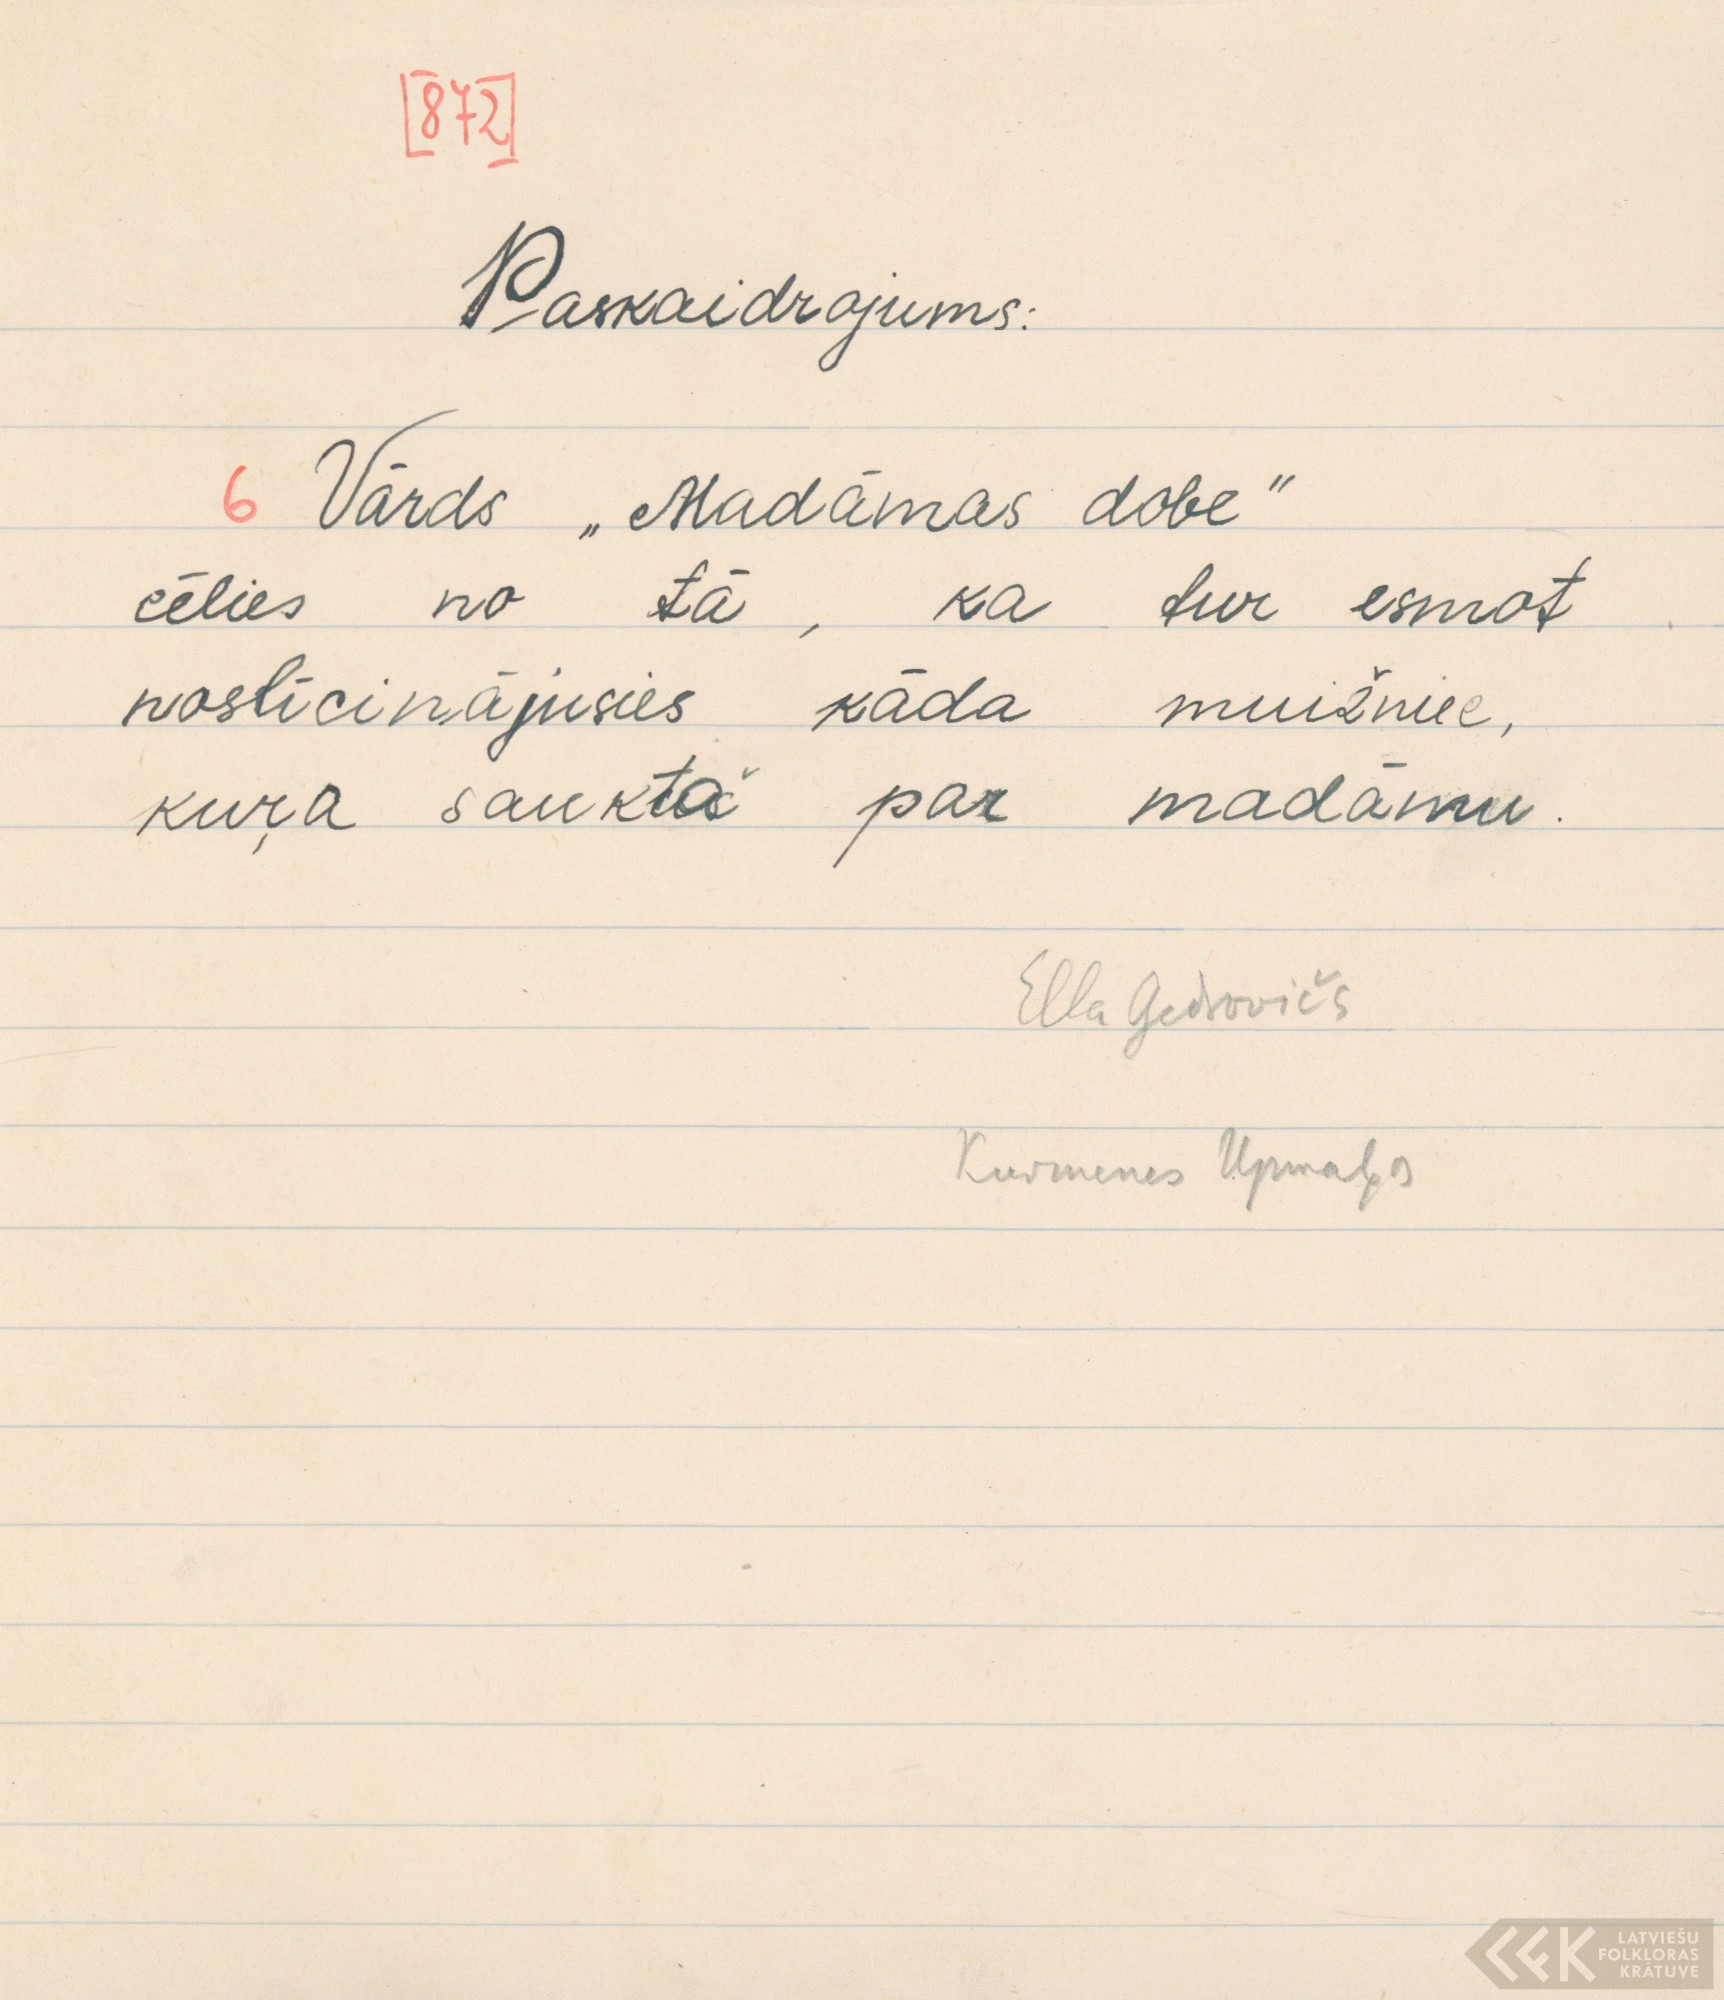 [872]
Paskaidrojums:
6 Vārds „Madāmas dobe"
cēlies no tā, ka tur esmot
noslīcinājusies kāda muižniec,
kuŗa saukta par madāmu.
Ella Gedrovičs
Kurmenes Upmaļos
LATVIEŠU
FOLKLORAS
KRĀTUVE